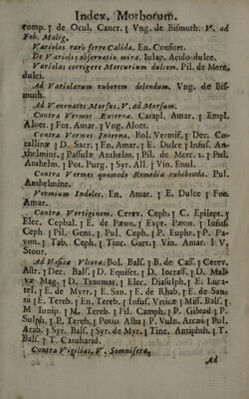 Index. Morborum.
comp. ꝛ de Ocul. Cancr. ꝛ Vng. de Bismuth: V. ad
Feb. Malig.
Variolas rarò ferre Calida. En. Confort.
De Variolis observatio mira. Iulap. Acido-dulce.
Variolas corrigere Mercurium dulcem. Pil. de Merc.
dulci.
Ad Variolarum ruborem delendum. Vng. de Bis-
muth.
Ad Venenatos Morsus. V. ad Morsum.
Contra Vermes Externa. Catapl. Amar. ꝛ Empl.
Aloet. ꝛ Fot. Amar. ꝛ Vng. Aloet.
Contra Vermes Interna. Bol. Vermif. ꝛ Dec. Co-
rallinæ ꝛ D. Sacr. ꝛ En. Amar. ꝛ E. Dulce ꝛ Infus. An-
thelmint. ꝛ Passulæ Anthelm. ꝛ Pil. de Merc. s. ꝛ Pul.
Anthelm. ꝛ Pot. Purg. ꝛ Syr. All. ꝛ Vin. Enul.
Contra Vermes quomodo Remedia exhibenda. Pul.
Anthelmint.
Vermium Indoles. En. Amar. ꝛ E. Dulce ꝛ Fon.
Amar.
Contra Vertiginem. Cerev. Ceph. ꝛ C. Epilept. ꝛ
Elec. Cephal. ꝛ E. de Pæon. ꝛ Expr. Pæon. ꝛ Infus.
Ceph. ꝛ Pil. Gent. ꝛ Pul. Ceph. ꝛ P. Euphr. ꝛ P. Pa-
von. ꝛ Tab. Ceph. ꝛ Tinc. Gutt. ꝛ Vin. Amar. I. V.
Stour.
Ad Vesicæ Vlcera. Bol. Balf. ꝛ B. de Caff. ꝛ Cerev.
Astr. ꝛ Dec. Balf. ꝛ D. Equiset. ꝛ D. Incraff. ꝛ D. Mal-
væ Mag. ꝛ D. Traumat. ꝛ Elec. Diasulph. ꝛ E. Luca-
tel. ꝛ E. de Myrr. ꝛ E. San. ꝛ E. de Rhab. ꝛ E. de San-
ta ꝛ E. Tereb. ꝛ En. Tereb. ꝛ Infus. Vrticæ ꝛ Miss. Balf. ꝛ
M Iunip. ꝛ M. Tereb. ꝛ Pil. Camph. ꝛ P. Gilead ꝛ P.
Sulph. ꝛ P. Tereb. ꝛ Potio Alba ꝛ P. Vuln. Arcan ꝛ Pul.
Arab. ꝛ Syr. Balf. ꝛ Syr. de Myr. ꝛ Tinc. Antiphth. ꝛ T.
Balf. ꝛ T. Cantharid.
Contra Vigilias. V. Somnifera.
Ad